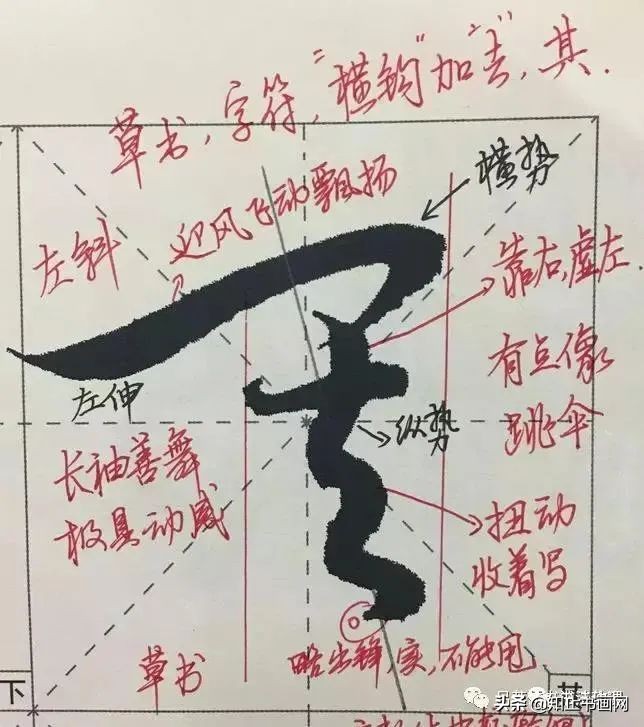 草书，字符，"横钩"加"去"，其.
横势
迎风飞动飘扬
左斜
靠右，虚左.
有点像
跳伞
左伸
纵势
长袖善舞
极具动感
扭动
收着写
略出锋，实，不能甩
草书
下
其
头条@知止书画网